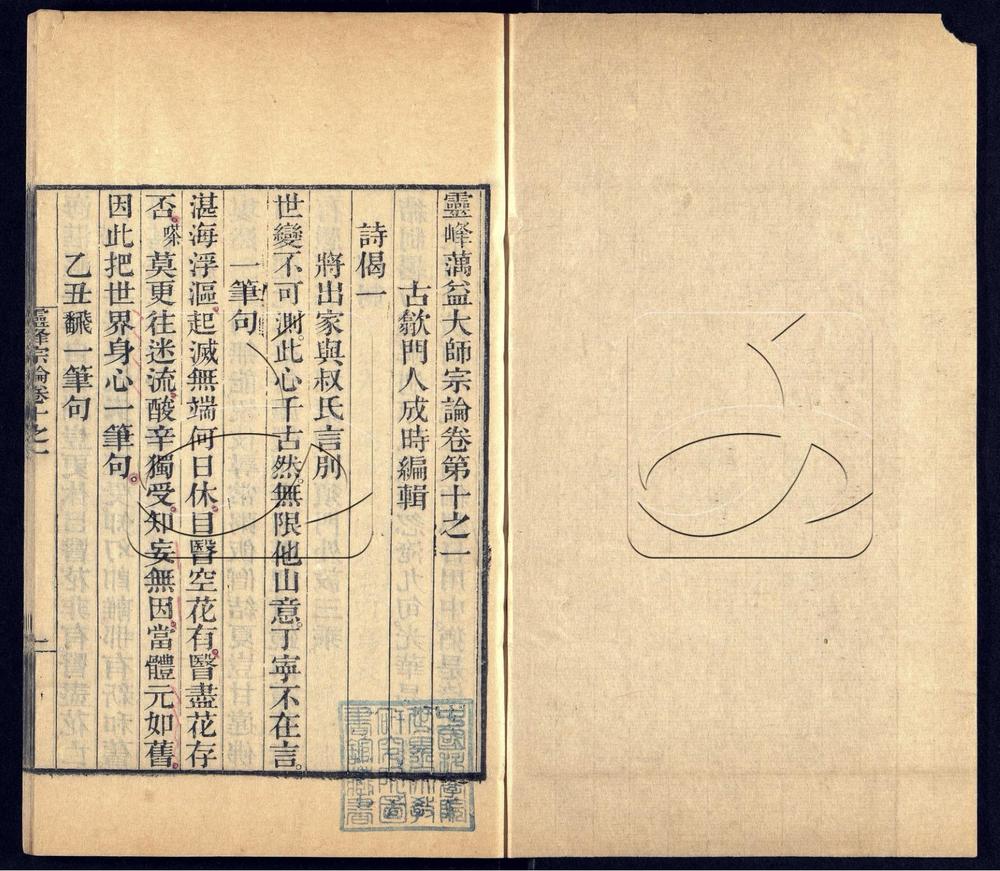 靈峰蕅益大師宗論卷第十之一
古歙門人成時編輯
詩偈一
將出家與叔氏言別
世變不可測此心千古然無限他山意丁寧不在言
一筆句
湛海浮漚起滅無端何日休目瞖空花有瞖盡花存
否嗏莫更往迷流酸辛獨受知妄無因當體元如舊
因此把世界身心一筆句
乙丑飜一筆句
靈峰宗論卷十之一
一